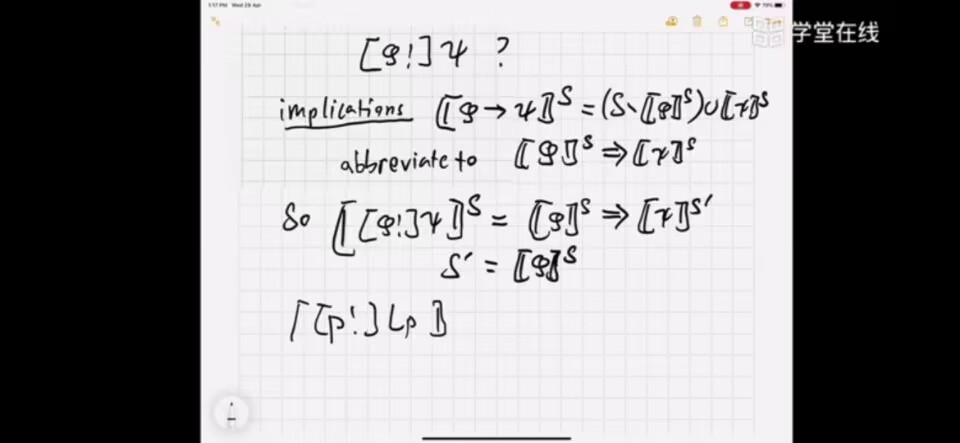 1:17 PM Wed 29 Apr
79%
学堂在线
[φ!]ψ ?
implications ⟦φ → ψ⟧ˢ = (S∖⟦φ⟧ˢ)∪⟦ψ⟧ˢ
abbreviate to ⟦φ⟧ˢ ⇒ ⟦ψ⟧ˢ
So ⟦[φ!]ψ⟧ˢ = ⟦φ⟧ˢ ⇒ ⟦ψ⟧ˢ′
S′ = ⟦φ⟧ˢ
⟦[p!]Lp⟧